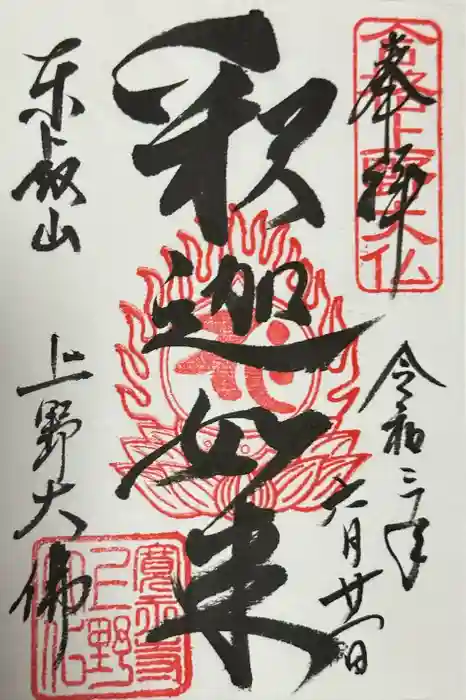 奉拝
合格上野大仏
令和三年六月廿一日
釈迦如来
東叡山
上野大佛
寛永寺
上野
大仏